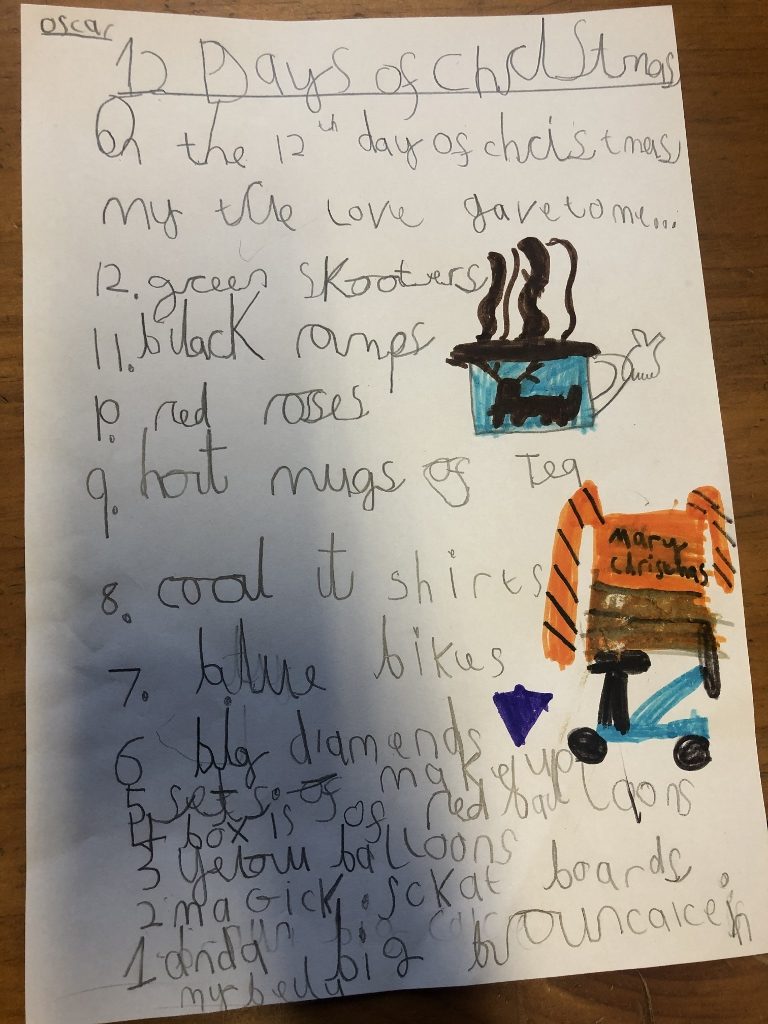 oscar
12 Days of christmas
On the 12th day of christmas
my true love gave to me...
12. green skooters
11. black ramps
10. red roses
9. hot mugs of tea
8. cool t shirts
mary
chrismas
7. blue bikes
6 big diamends
5 sets of makeup
4 box is of red balloons
3 yelow balloons
2 magick sckat boards.
1 and a big brouncake in
my belly